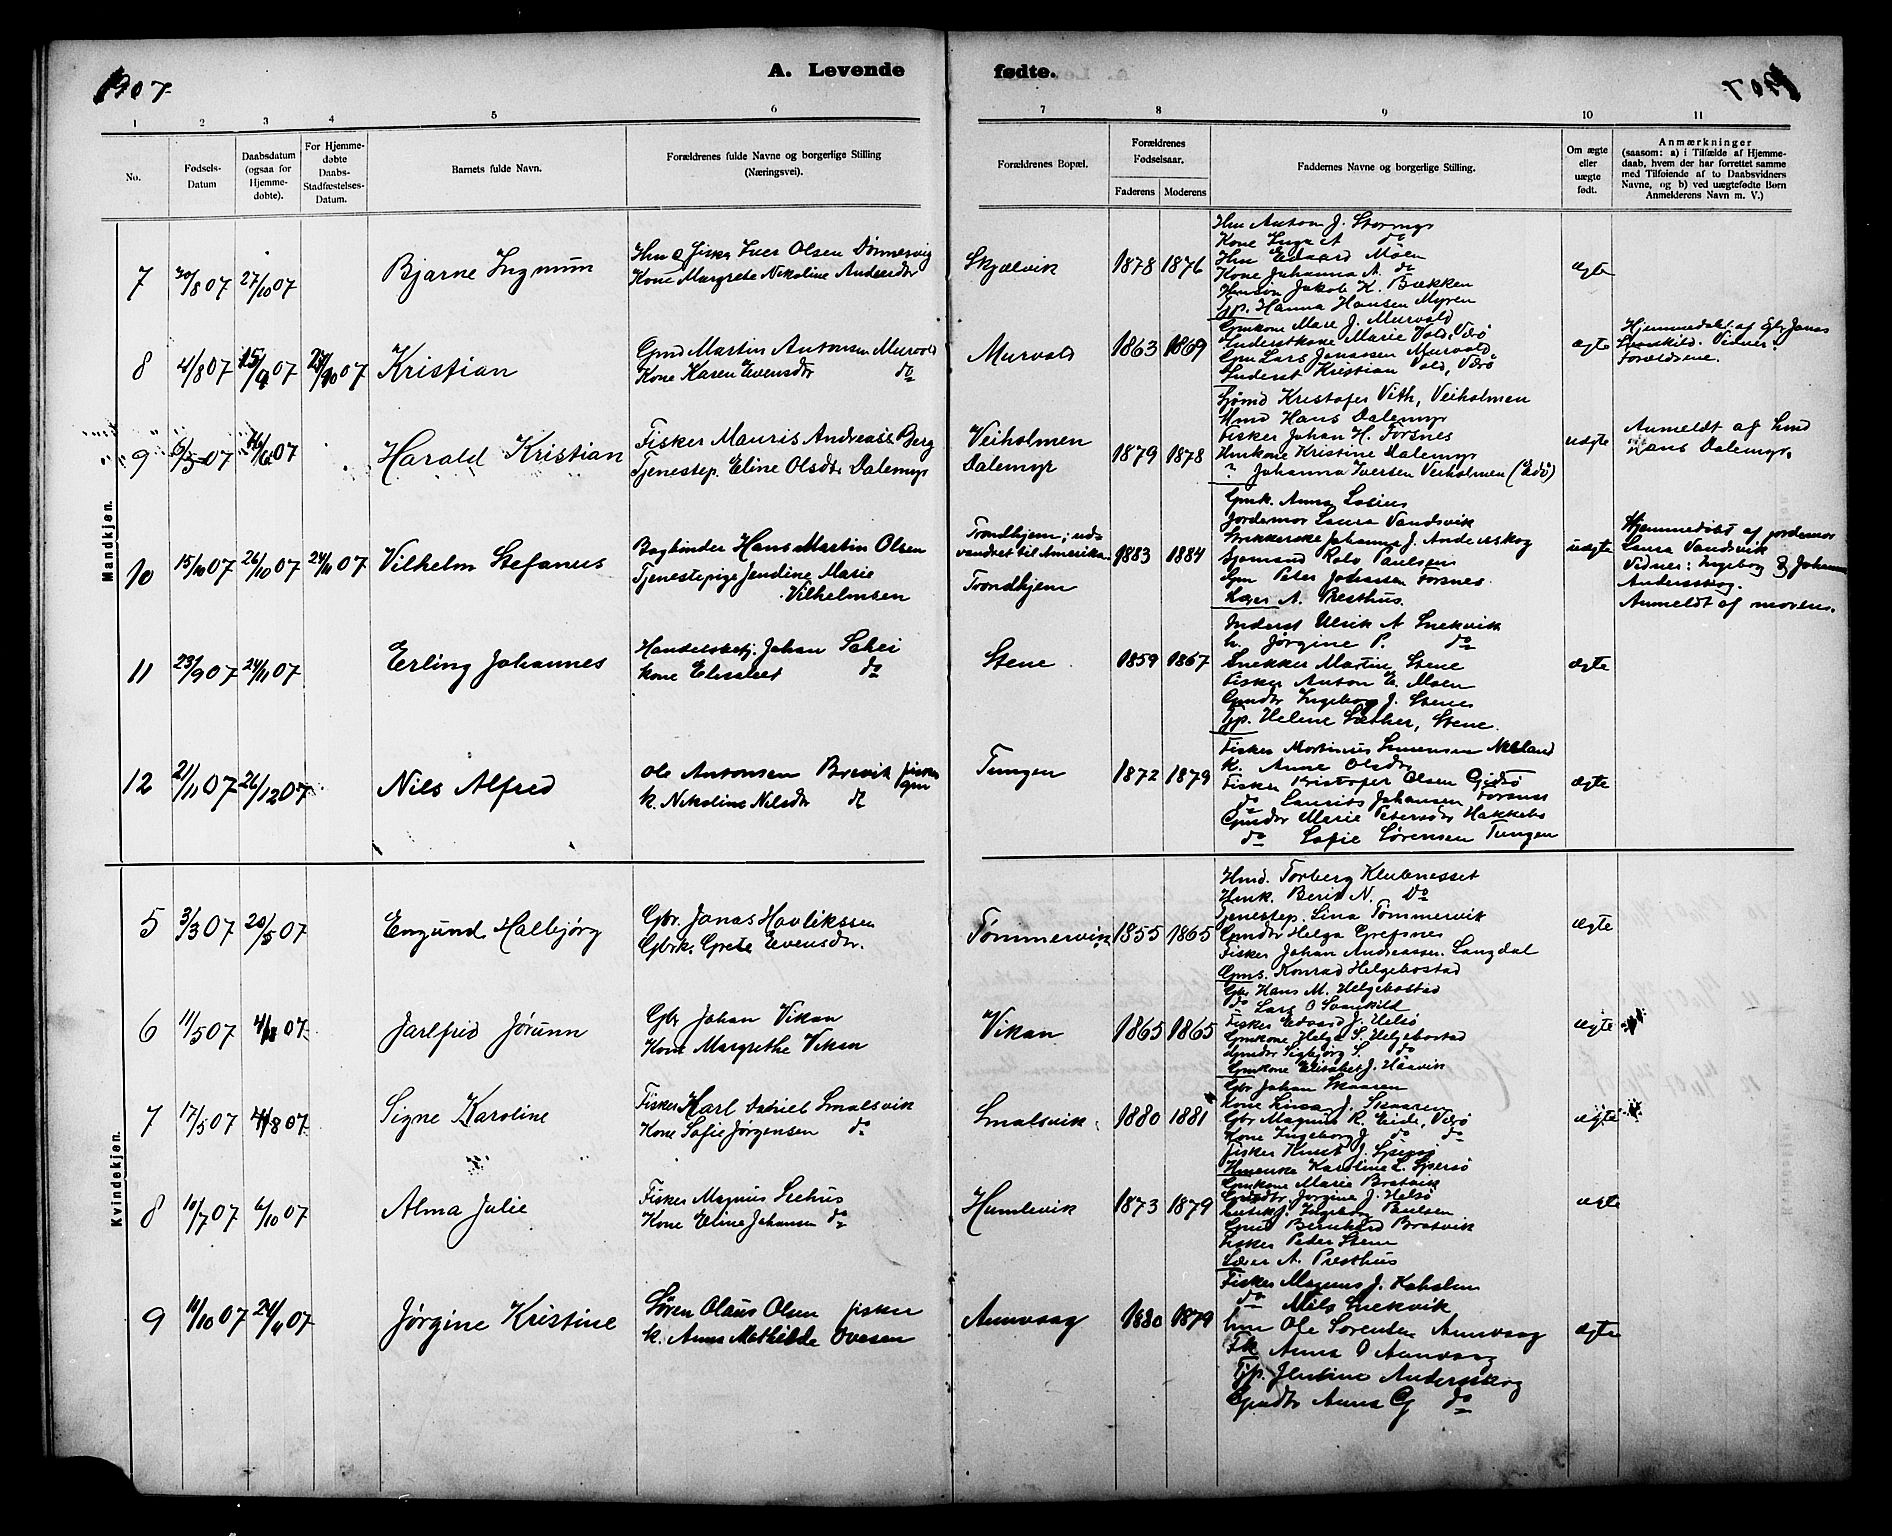 1907
A. Levende
fødte.
1907
1
2
3
4
5
6
7
8
9
10
11
No.
Fødsels-
Datum
Daabsdatum
(ogsaa for
Hjemme-
døbte).
For Hjemme-
døbte
Daabs-
Stadfæstelses-
Datum.
Barnets fulde Navn.
Forældrenes fulde Navne og borgerlige Stilling
(Næringsvei).
Forældrenes Bopæl.
Forældrenes
Fødselsaar.
Faderens
Moderens
Faddernes Navne og borgerlige Stilling.
Om ægte
eller
uægte
født.
Anmærkninger
(saasom: a) i Tilfælde af Hjemme-
daab, hvem der har forrettet samme
med Tilføiende af to Daabsvidners
Navne, og b) ved uægtefødte Børn
Anmelderens Navn m. V.)
Mandkjøn.
7
20/8 07
27/10 07
Bjarne Ingmum
Hm & fisker Iver Olsen Dønnesvig
Kone Margrete Nikoline Andersdtr
Skjælvik
1878
1876
Hm Anton J. Storrugs
Kone Inga A do
Hm Edvard Moen
Kone Johanna A. do
Hmsøn Jakob K. Bækken
Tjp. Hanna Hansen Myren
ægte
8
4/8 07
15/9 07
27/10 07
Kristian
Gmd Martin Antonsen Murvold
Kone Karen Evensdtr do
Murvold
1863
1869
Gmkone Mare J. Murvold
Inderstkone Marie Vold, Værø
Gm Lars Jonassen Murvold
Inderst Kristian Vold, Værø
ægte
Hjemmedøbt af Gbr Jonas
Svanskild. Vidner:
Forældrene.
9
6/5 07
16/6 07
Harald Kristian
Fisker Mauris Andreass Berg
Tjenestep. Eline Olsdtr Dalemyr
Veiholmen
Dalemyr
1879
1878
Sjømd Kristofer Vith, Veiholmen
Hmd Hans Dalemyr
Fisker Johan H. Forsnes
Hmkone Kristine Dalemyr
? Johanna Iversen Veiholmen (Edø)
uægte
Anmeldt af Hmd
Hans Dalemyr.
10
15/10 07
26/10 07
24/11 07
Vilhelm Stefanus
Bogbinder Hans Martin Olsen
Tjenestepige Jendine Marie
Vilhelmsen
Trondhjem; ud-
vandret til Amerika
Trondhjem
1883
1884
Gmk. Anna Losius
Jordemor Laura Vandsvik
Johanna J. Anderskog
Sjømand Rolv Paulsen
Gm Peter Johansen Forsnes
Lærer A. Presthus.
uægte
Hjemmedøbt af jordemor
Laura Vandsvik
Vidner: Ingeborg & Johanna
Anderskog.
Anmeldt af moren.
11
23/9 07
24/11 07
Erling Johannes
Handelsbetj. Johan Schei
Kone Elisabet do
Stene
1859
1867
Inderst Ulrik A Snekvik
k. Jørgine P. do
Snekker Martin Stene
Fisker Anton E. Moen
Gmdtr Ingeborg J. Stene
Tjp. Helene Sæther, Stene.
ægte
12
21/11 07
26/12 07
Nils Alfred
Ole Antonsen Brevik fisker
k. Nikoline Nilsdtr do gm
Tungen
1872
1879
Fisker Mortinus Simensen Nerland
k. Anne Olsdtr
Fisker Kristofer Olsen Gjedsø
do Laurits Johansen Forsnes
Gmdtr Marie Petersdtr Hakkebo
do Sofie Sørensen Tungen
ægte
Kvindekjøn.
5
3/3 07
20/5 07
Engund Halbjørg
Gbr. Jonas Havlikssen
Gbrk. Grete Evensdtr.
Tømmervik
1855
1865
Hmd. Torberg Klubnesset
Hmk. Berit N. Do
Tjenestep. Lina Tømmervik
Gmdtr Helga Grefsnes
Fisker Johan Andreassen Langdal
Gms. Konrad Helgebostad
ægte
6
11/5 07
07
Jarlfrid Jørunn
Gbr Johan Vikan
Kone Margrethe Vikan
Vikan
1865
1865
Gbr Hans M. Helgebostad
do Lars O Svanskild
Fisker Edvard J. Helsø
Gmkone Helga S. Helgebostad
Gmdtr Sigbjørg S. do
Gmkone Elisabet J. Haavik
ægte
7
17/5 07
8 07
Signe Karoline
Fisker Karl Daniel Smalsvik
Kone Sofie Jørgensen do
Smalsvik
1880
1881
Gbr Johan Skaaren
Kone Linea J. Skaaren
Gbr Magnus R. Eide, Værø
Kone Ingeborg J do do
Fisker Knut J. Spersø
Hmenke Karolina L. Spersø
ægte
8
10/7 07
6/10 07
Alma Julie
Fisker Magnus Seehus
Kone Eline Johansen do
Humlevik
1873
1879
Gmkone Marie Bratvik
Gmdtr. Jørgine J. Helsø
Ingeborg Paulsen
Gmd Bernhard Bratvik
Fisker Peder Stene
Lærer A. Presthus
ægte
9
10/10 07
24/11 07
Jørgine Kristine
Søren Olaus Olsen fisker
k. Anna Mathilde Ovesen
Aunvaag
1880
1879
Fisker Magnus J. Kahalen
do Nils Snekvik
hm Ole Sorensen Aunvaag
Fk Anna O Aunvaag
Tjp. Jentine Anderskog
Gmdtr Anna G do
ægte